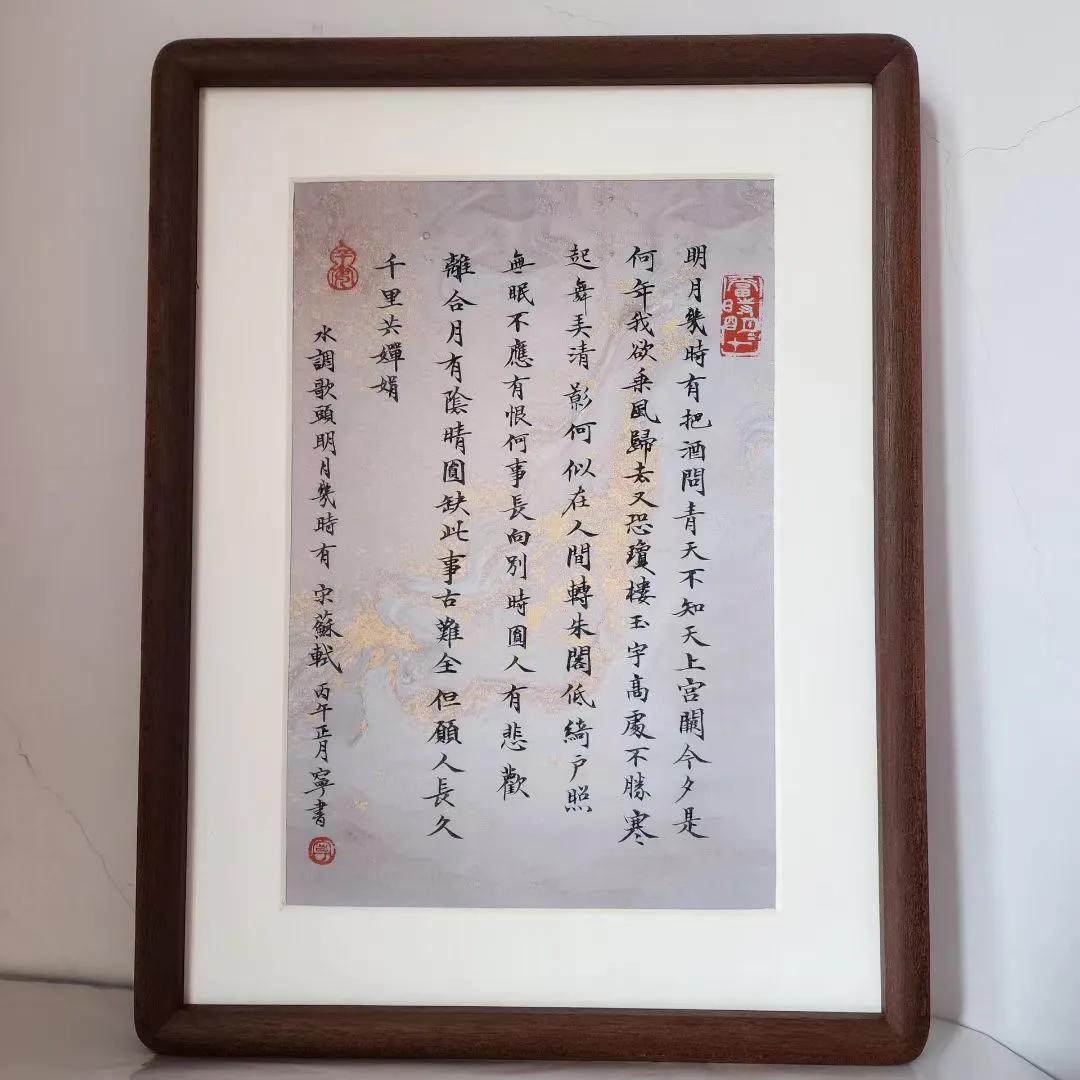 明月幾時有把酒問青天不知天上宮闕今夕是
何年我欲乘風歸去又恐瓊樓玉宇高處不勝寒
起舞弄清影何似在人間轉朱閣低綺戶照
無眠不應有恨何事長向別時圓人有悲歡
離合月有陰晴圓缺此事古難全但願人長久
千里共嬋娟
水調歌頭明月幾時有 宋蘇軾 丙午正月寧書
寧